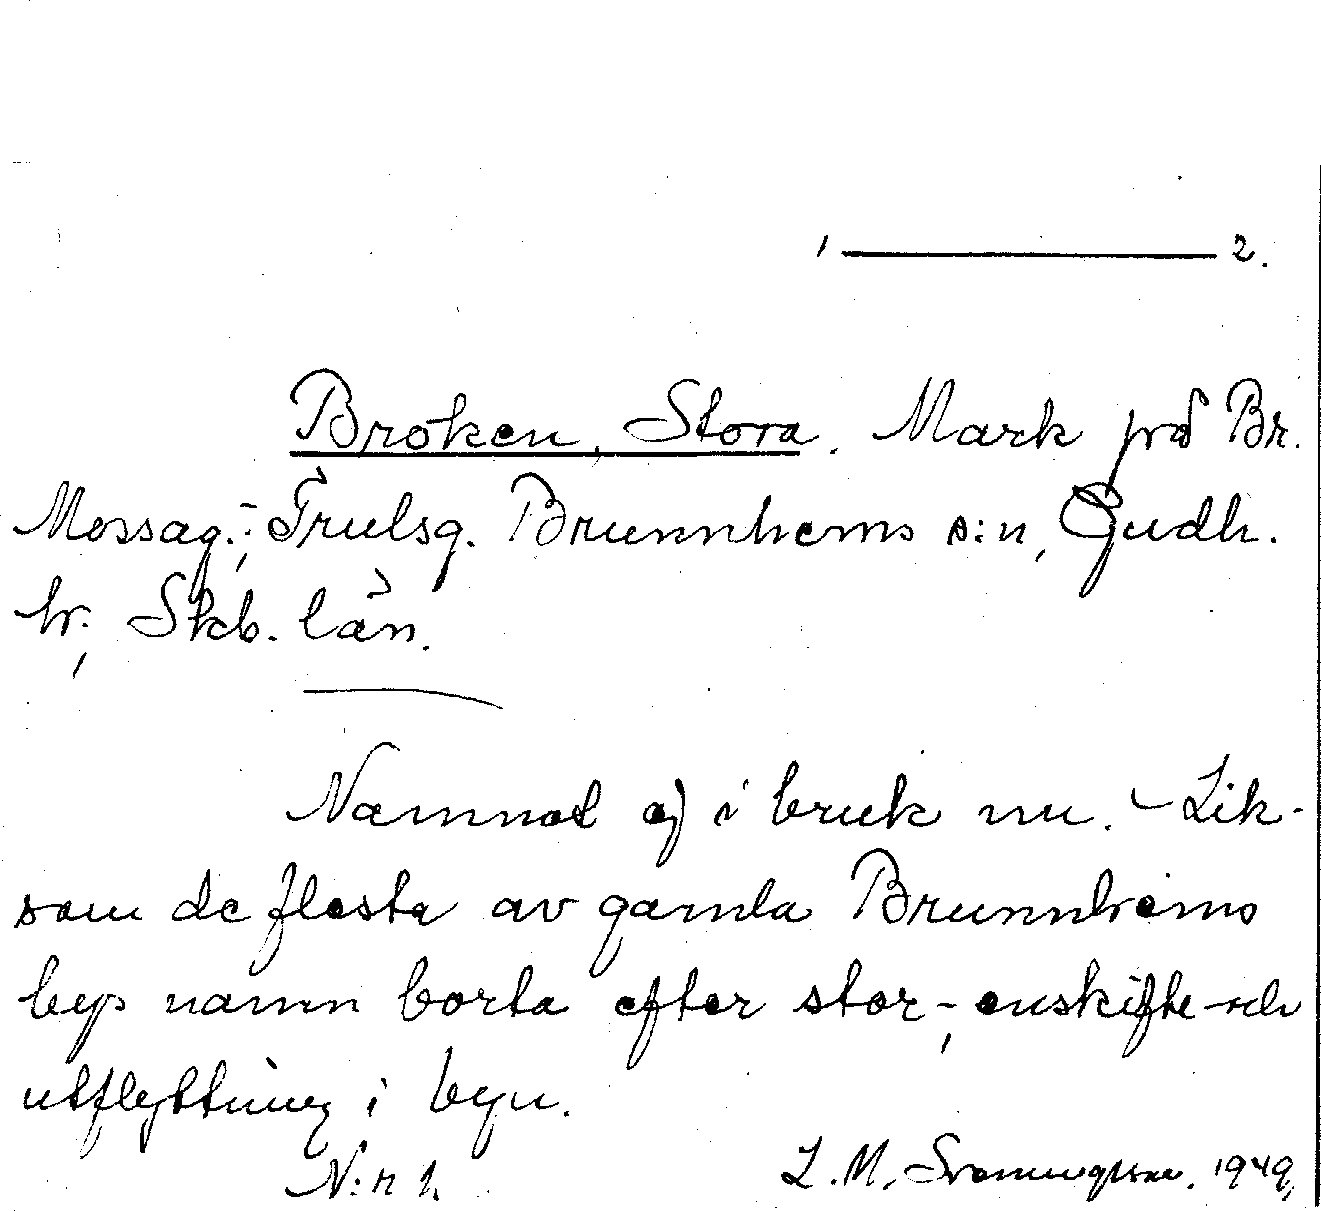 1 ——— 2.
Broken, Stora. Mark på Br.
Mossag.-, Trulsg. Brunnhems s:n, Gudh.
hr, Skb. län.
Namnet ej i bruk nu. – Lik-
som de flesta av gamla Brunnhems
bys namn borta efter stor-, enskifte och
utflyttning i byn.
N:r 1. L. M. Svenungsson. 1949,